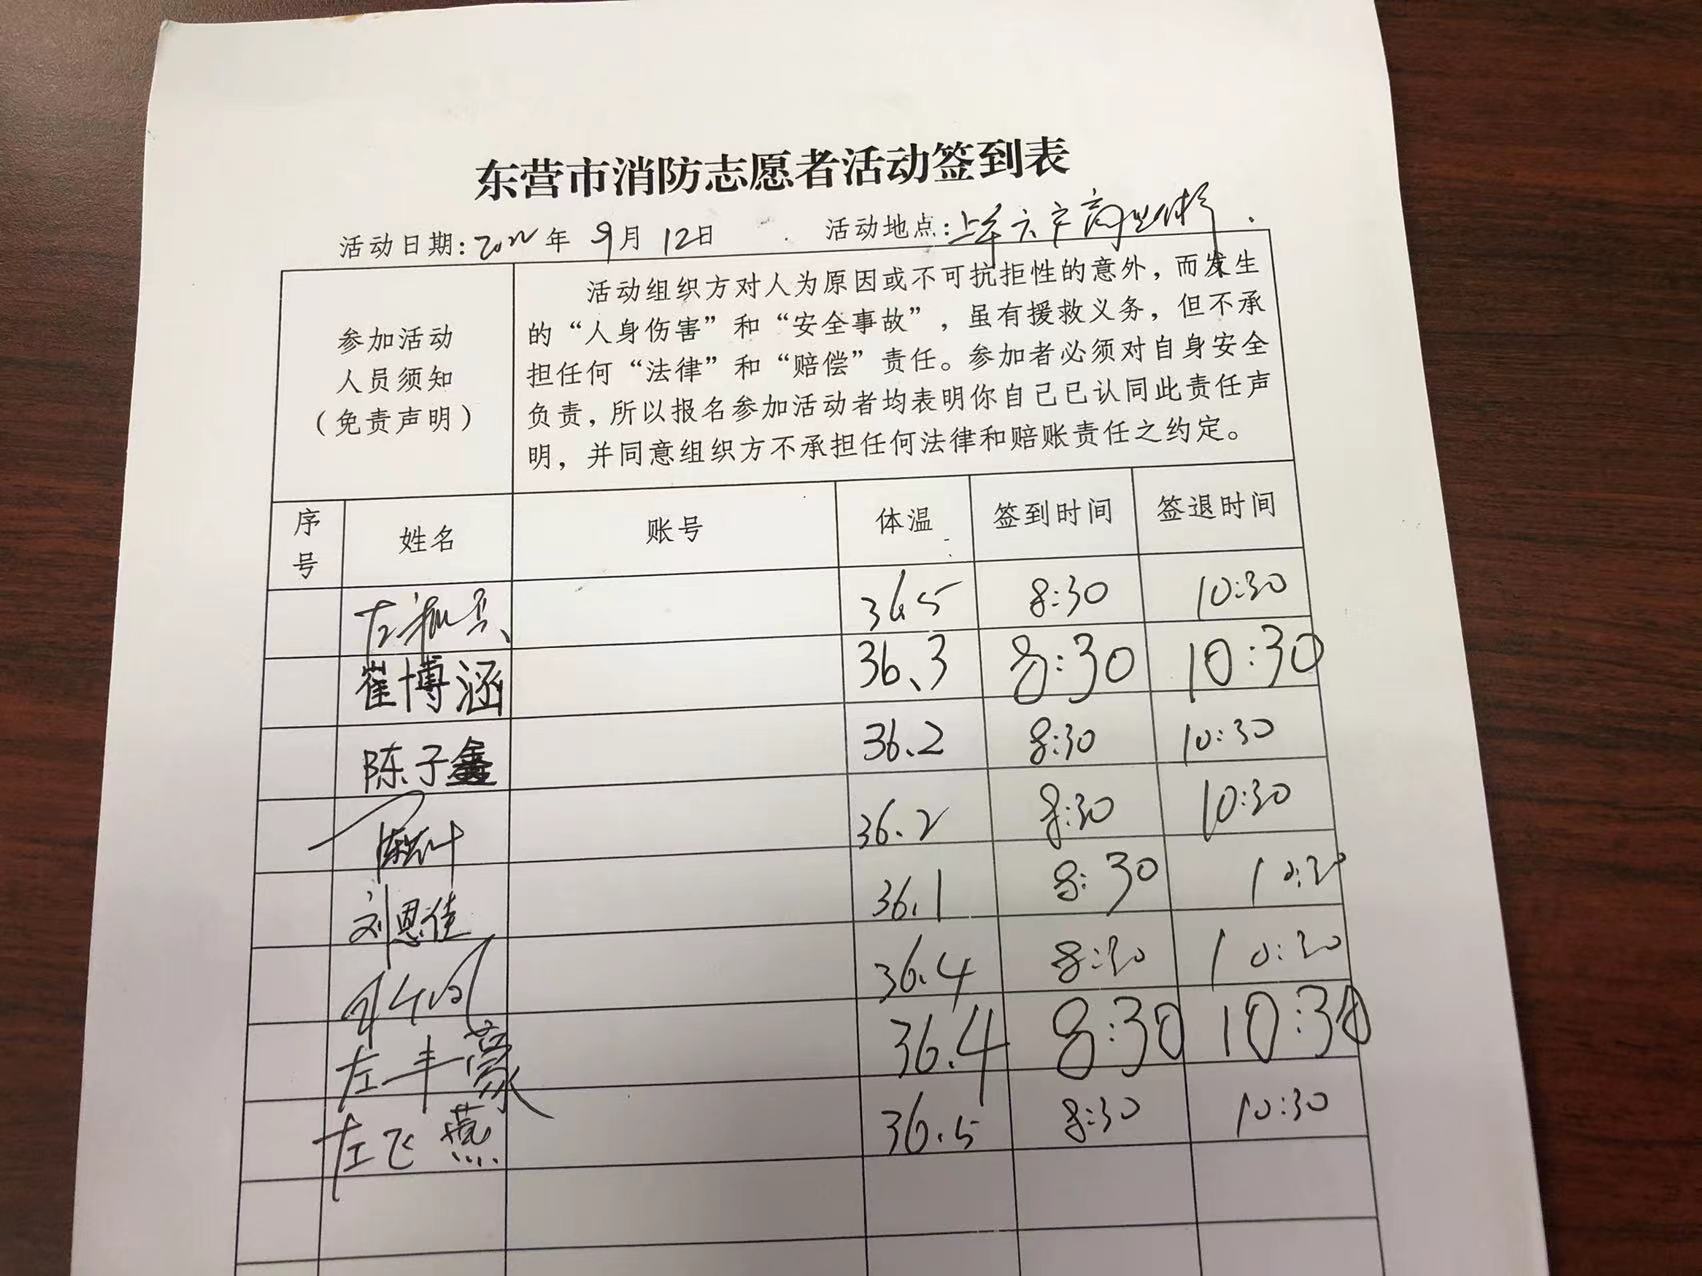 东营市消防志愿者活动签到表
活动日期:2022年 9月 12日 活动地点:
参加活动
人员须知
(免责声明)
活动组织方对人为原因或不可抗拒性的意外，而发生
的“人身伤害”和“安全事故”，虽有援救义务，但不承
担任何“法律”和“赔偿”责任。参加者必须对自身安全
负责，所以报名参加活动者均表明你自己已认同此责任声
明，并同意组织方不承担任何法律和赔账责任之约定。
序号 姓名 账号 体温 签到时间 签退时间
36.5 8:30 10:30
崔博涵 36.3 8:30 10:30
陈子鑫 36.2 8:30 10:30
36.2 8:30 10:30
刘恩佳 36.1 8:30 10:30
36.4 8:30 10:30
左丰蒙 36.4 8:30 10:30
左飞燕 36.5 8:30 10:30